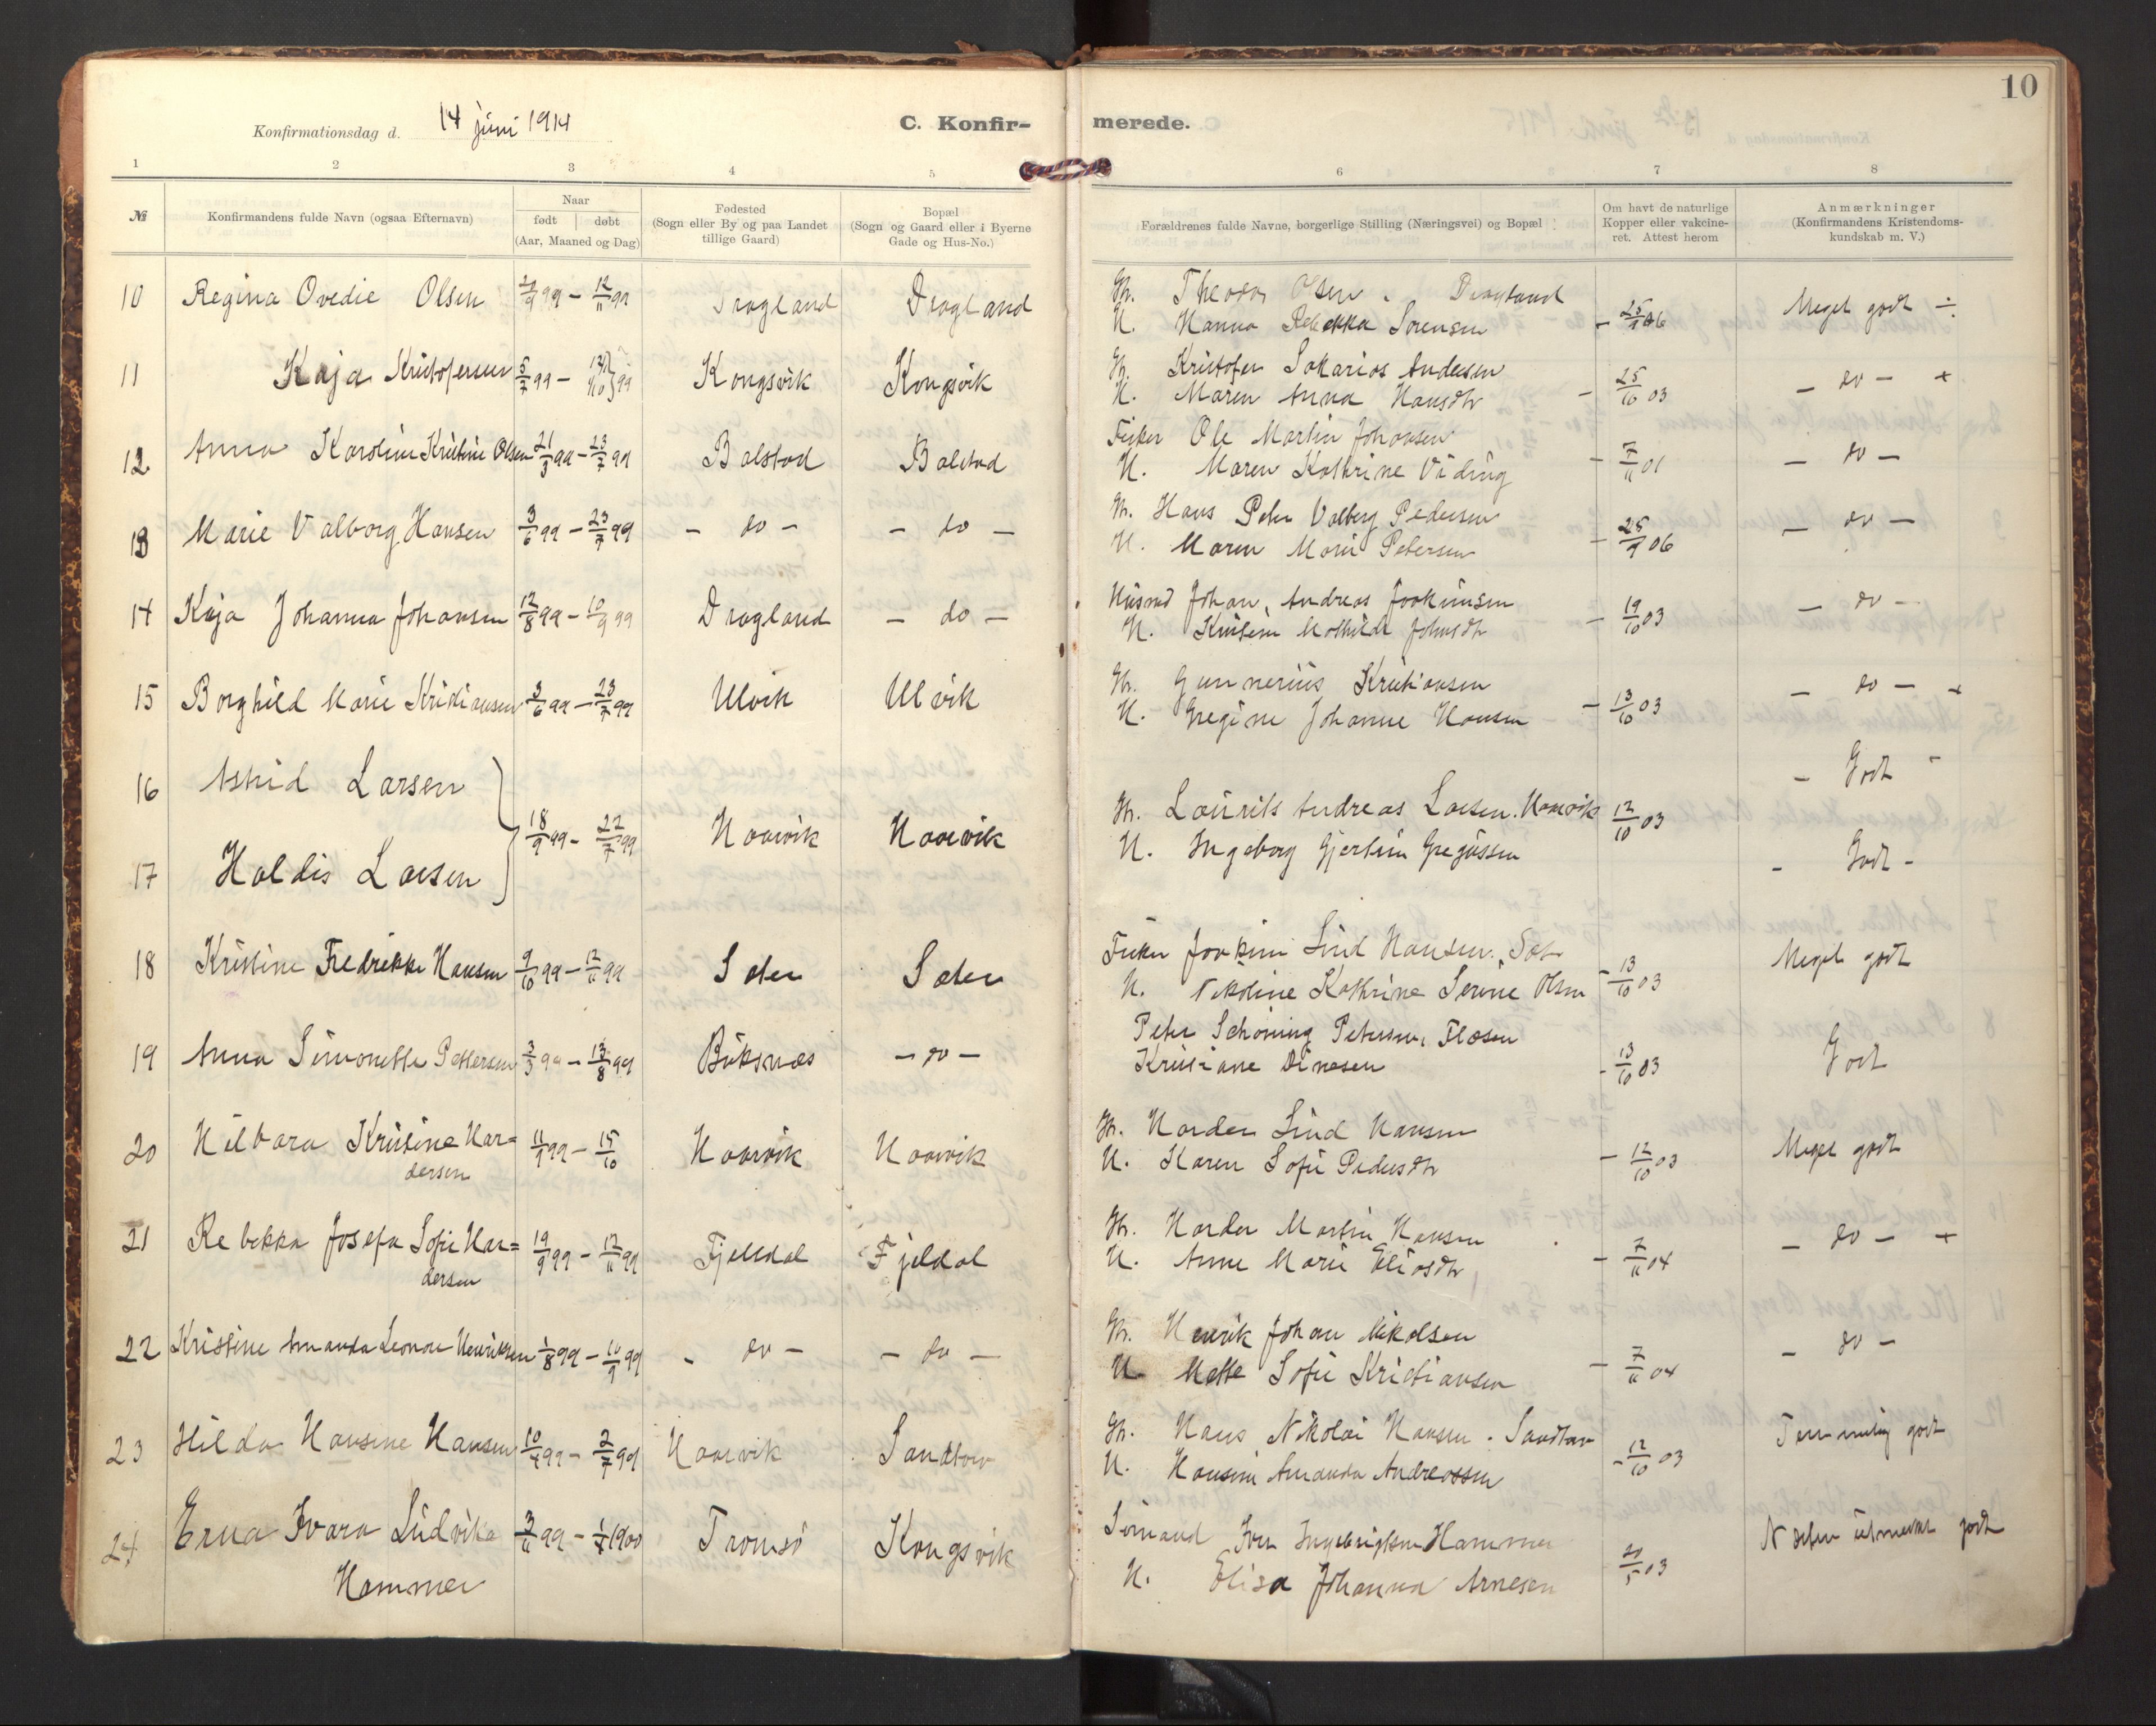 10
Konfirmationsdag d. 14 juni 1914
C. Konfir-merede.
1 2 3 4 5 6 7 8
№
Konfirmandens fulde Navn (ogsaa Efternavn)
Naar
født døbt
(Aar, Maaned og Dag)
Fødested
(Sogn eller By og paa Landet
tillige Gaard)
Bopæl
(Sogn og Gaard eller i Byerne
Gade og Hus-No.)
Forældrenes fulde Navne, borgerlige Stilling (Næringsvei) og Bopæl
Om havt de naturlige
Kopper eller vakcine-
ret. Attest herom
Anmærkninger
(Konfirmandens Kristendoms-
kundskab m. V.)
10 Regina Ovedie Olsen 99 – 12/11 99 Dragland Dragland
Theodor Olsen. Dragland
Hanna Rebekka Sørensen – 25/9 06 Meget godt ÷
11 Kaja Kristofersen 5/7 99 – 99 Kongsvik Kongsvik
Kristofer Sakarias Andersen
Maren Anna Hansdtr – 25/10 03 – do – +
12 Anna Karoline Kristine Olsen 21/3 99 – 23/7 99 Balstad Balstad
Fisker Ole Martin Johansen
H. Maren Kathrine Viding – 7/11 01 – do –
13 Marie Valborg Hansen 3/6 99 – 23/7 99 – do – – do –
Hans Peter Valberg Pedersen
H. Maren Marie Petersen – 25/9 06 – do –
14 Kaja Johanna Johansen 12/8 99 – 10/9 99 Dragland – do –
Husmd Johan Andreas Joakimsen
H. Kristine Mathilde Johnsdtr – 19/10 03 – do –
15 Borghild Marie Kristiansen 3/6 99 – 23/7 99 Ulvik Ulvik
Gunnerius Kristiansen
H. Gregine Johanne Hansen – 13/10 03 – do – +
16 Astrid Larsen – Godt –
17 Haldis Larsen 18/9 99 – 22/7 99 Haarvik Haarvik
Laurits Andreas Larsen. Haarvik
H. Ingeborg Gjertine Gregussen 12/10 03 – Godt –
18 Kristine Fredrikke Hansen 9/10 99 – 12/11 99 Sater Sater
Fisker Joakim Lind Hansen. Sat
H. Nikoline Kathrine Serine Olsen – 13/10 03 Meget godt
19 Anna Simonette Pettersen 3/3 99 – 13/8 99 Buksnæs – do –
Peter Schøning Petersen, Flæsen
Kristiane Dinesen – 13/10 03 Godt
20 Hilbara Kristine Har=
dersen 11/9 99 – 15/10 Haarvik Haarvik
Harder Lind Hansen
H. Karen Sofie Pedersdtr – 12/10 03 Meget godt
21 Rebekka Josefa Sofie Har=
dersen 19/9 99 – 12/11 99 Fjelldal Fjeldal
Harder Martin Hansen
H. Anne Marie Eliasdtr – 7/11 04 – do – +
22 Kristine Amanda Leonore Henriksen 1/8 99 – 10/9 99 – do – – do –
Henrik Johan Nikolsen
H. Mette Sofie Kristiansen – 7/11 04 – do –
23 Hilda Hansine Hansen 10/4 99 – 2/7 99 Haarvik Sandtorv
Hans Nikolai Hansen. Sandtorv
H. Hansine Amanda Andreassen – 12/10 03 Temmelig godt
24 Erna Ivara Ludvika
Hammer 3/11 99 – 1/4 1900 Tromsö Kongsvik
Sömand Iver Ingebrigtsen Hammer
H. Elisa Johanna Arnesen 20/5 03 Næsten utmerket godt